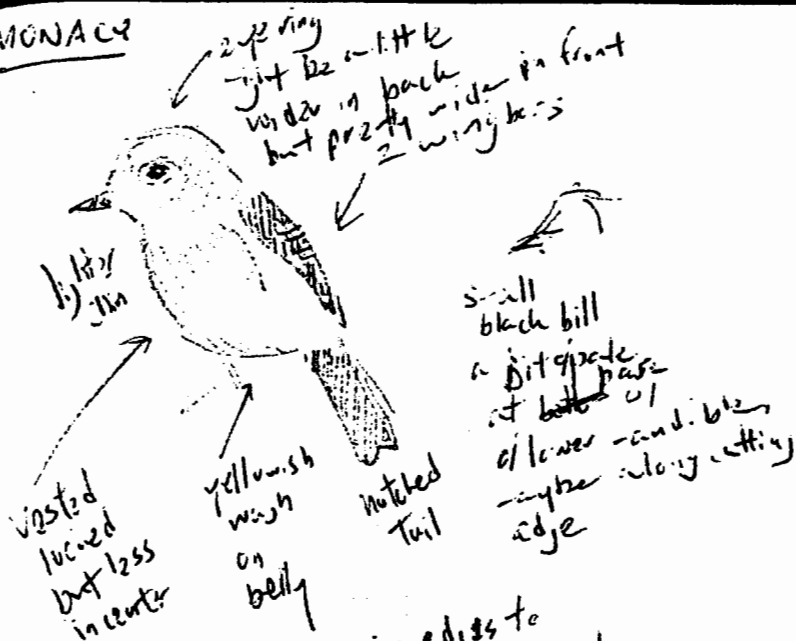 MONACY
eye ring
might be a little
wider in back
but pretty wide in front
2 wing bars
lighter
chin
small
black bill
a bit
at base
of lower mandible
maybe along cutting
edge
vested
looked
but less
in center
yellowish
wash
on
belly
notched
tail